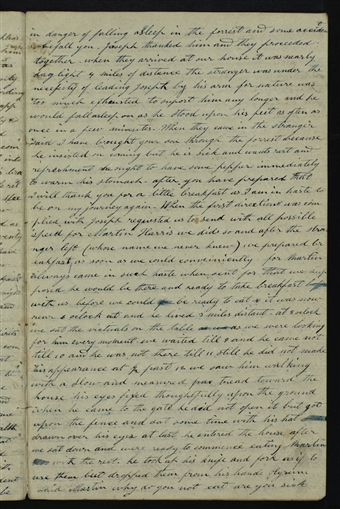 in danger of falling asleep in the forrest and some accident
befall you. Joseph thanked him and they proceeded
together. when they arrived at our house it was nearly
day light 4 miles of distance the stranger was under the
necessity of leading Joseph by his arm for nature was
too much exhausted to suport him any longer and he
would fall asleep on as he stood upon his feet as often as
once in a few minutes. When they came in the stranger
said I have brought your son through the forrest because
he insisted on coming but he is sick and needs rest and
refreshment he ought to have some pepper immediately
to warm his stomach after you have prepared that
I will thank you for a little breakfast as I am in haste to
be on my journey again. When the first direction was com
plied with Joseph requested us to send with all possible
speed for Martin Harris we did so and after the stra
nger left (whose name we never knew) we prepared br
eakfast as soon as we could conveniently for Martin
always came in such haste when sent for that we sup
posed he would be there and ready to take breakfast
with us before we could be ready to eat it it was now
near 6 oclock at and he lived 3 miles distant at 8 oclock
we set the victuals on the table as we were looking
for him every moment we waited till 9 and he came not
till 10 and he was not there till 11 still he did not make
his appearance at ½ past 12 we saw him walking
with a slow and measured tread toward the
house his eyes fixed thoughtfully upon the ground
when he came to the gate he did not open it but got
upon the fence and sat some time with his hat
drawn over his eyes at last he entered the house after
we sat down and were ready to commence eating Martin
with the rest. he took up his knife and fork as if to
use them but dropped them from his hands Hyrum
said Martin why do you not eat are you sick